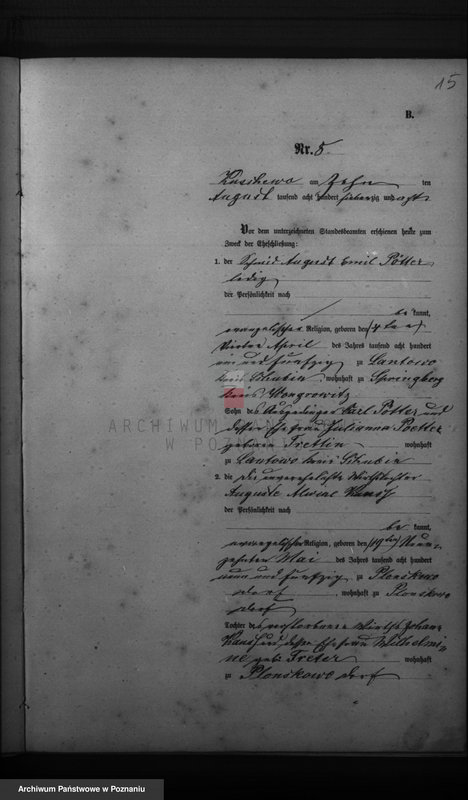 15
B.
Nr. 5
am Zehn ten
August tausend acht hundert siebenzig und acht
Vor dem unterzeichneten Standesbeamten erschienen heute zum
Zweck der Eheschließung:
1. der Schmid August Emil Pötter
ledig
der Persönlichkeit nach
be kannt,
evangelischer Religion, geboren den
vierten April des Jahres tausend acht hundert
und funfzig zu
Kreis Schubin wohnhaft zu Springberg
Kreis Wongrowitz
Sohn des Ausgedinger Karl Pötter und
dessen Ehefrau Julianna Poetter
geborene Trettin wohnhaft
zu Kreis Schubin
2. die unverehelichte
Auguste
der Persönlichkeit nach
be kannt,
evangelischer Religion, geboren den (19ten) Neun-
zehnten Mai des Jahres tausend acht hundert
neun und funfzig zu Plonskowo
dorf, wohnhaft zu Plonskowo
dorf
Tochter des verstorbenen Wirths Johann
und dessen Ehefrau Wilhelmi-
ne geb. Treter wohnhaft
zu Plonskowo dorf
ARCHIWUM
W POZ
Archiwum Państwowe w Poznaniu